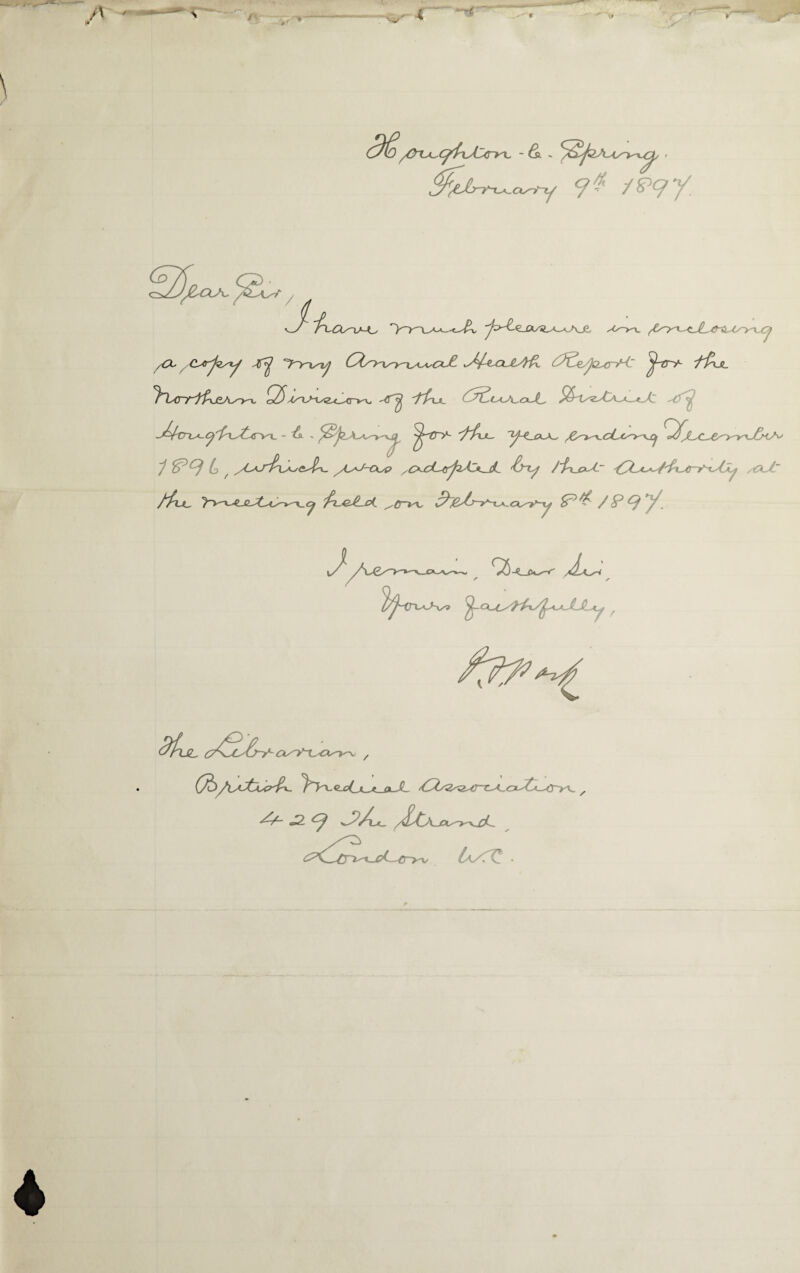 Houghton-le-Spring.
February 9th 1897.
Dear Sir,
I have much pleasure in enclosing
a copy of my Annual Health Report for the
Northern Division of the Rural District of
Houghton-le-Spring for the year ending December
1896, which was adopted by that Authority at
the meeting held on February 8th 1897.
I remain, Dear Sir,
Yours faithfully,
The Librarian,
British Medical Association,
429 The Strand,
London W.C.